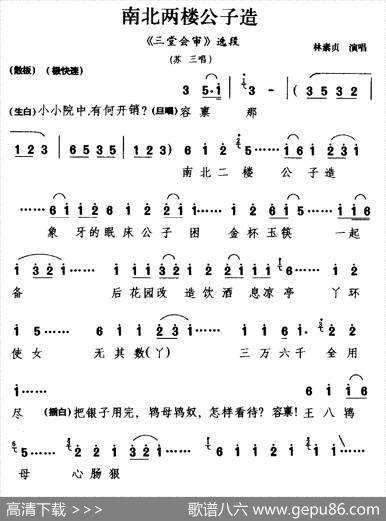 南北两楼公子造
《三堂会审》选段
(苏 三唱)
林素贞 演唱
(散板) (稍快速)
3 5·1 3 - ( 3 5 3 2
(生白)小小院中,有何开销?(旦唱)容禀 那
1 2 3 6 5 3 5 1 2 3) 6 1 2 2 5…… 1 6 2 3 1
南北二楼 公子造
……6 1 1 2 6 1 2 2 1…… 5 1 2 1…… 1 1 6
象牙的眠床公子困 金杯玉筷 一起
1…… 1 3 2 1…… 2 3 1 2 1 2 1 2 3 1 6…… 1 2
备 后花园改造饮酒息凉亭 丫环
1 5…… 6 1 2 1…… 2 1 2 1…… 6 1
使女 无其数(丫) 三万六千 全用
1…… 6 1 1 6
尽 (插白)把银子用完,鸨母鸨奴,怎样看待?容禀!王八鸨
5…… 2 2 1 2 3 1…… 5……
母 心肠狠
高清下载 >>>
歌谱八六 www.gepu86.com